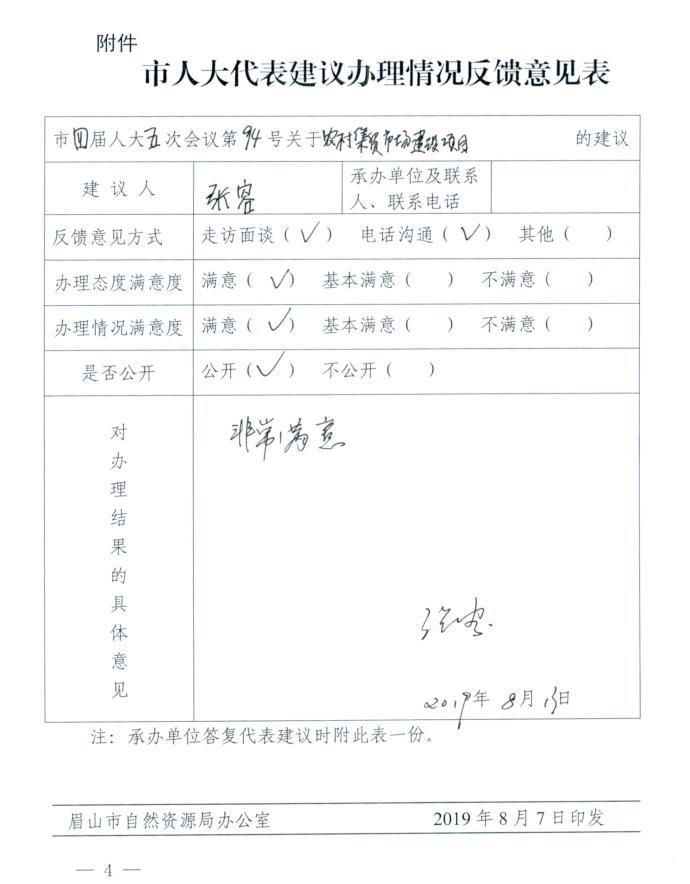 附件
市人大代表建议办理情况反馈意见表
市四届人大五次会议第94号关于农村集贸市场建设项目的建议
建议人 张容 承办单位及联系人、联系电话
反馈意见方式 走访面谈（√） 电话沟通（√） 其他（ ）
办理态度满意度 满意（√） 基本满意（ ） 不满意（ ）
办理情况满意度 满意（√） 基本满意（ ） 不满意（ ）
是否公开 公开（√） 不公开（ ）
对办理结果的具体意见
非常满意
2019年8月13日
注：承办单位答复代表建议时附此表一份。
眉山市自然资源局办公室 2019年8月7日印发
— 4 —